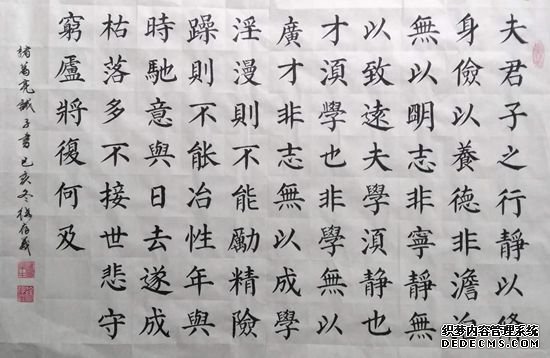 夫君子之行靜以修
身儉以養德非澹泊
無以明志非寧靜無
以致遠夫學湏靜也
才湏學也非學無以
廣才非志無以成學
淫漫則不能勵精險
躁則不能冶性年與
時馳意與日去遂成
枯落多不接世悲守
窮廬將復何及
諸葛亮誡子書 己亥冬
织梦内容管理系统
DEDECMS.COM